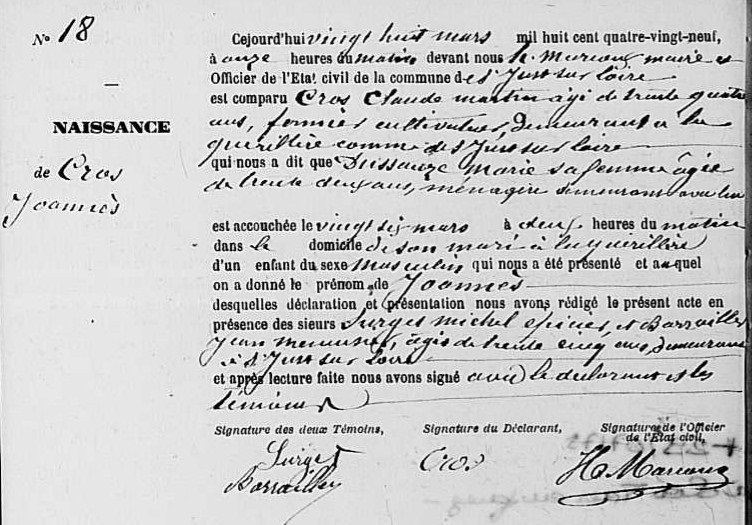 N° 18
NAISSANCE
de Cros
Joannès
Cejourd'hui vingt huit mars mil huit cent quatre-vingt-neuf,
à onze heures du matin devant nous H. Marcoux maire et
Officier de l'Etat civil de la commune de St Just sur Loire
est comparu Cros Claude martin âgé de trente quatre
ans, fermier cultivateur, demeurant à la
quérillière commune de St Just sur Loire
qui nous a dit que Marie sa femme âgée
de trente deux ans, ménagère demeurant avec lui
est accouchée le vingt six mars à deux heures du matin
dans le domicile de son mari à la quérillière
d'un enfant du sexe Masculin qui nous a été présenté et auquel
on a donné le prénom de Joannès
desquelles déclaration et présentation nous avons rédigé le présent acte en
présence des sieurs Surget michel épicier, et Barrailler
Jean menuisier, âgés de trente cinq ans, demeurant
à St Just sur Loire
et après lecture faite nous avons signé avec le déclarant et les
témoins
Signature des deux Témoins,
Signature du Déclarant,
Signature de l'Officier
de l'Etat civil,
Surget
Barrailler
Cros
H. Marcoux